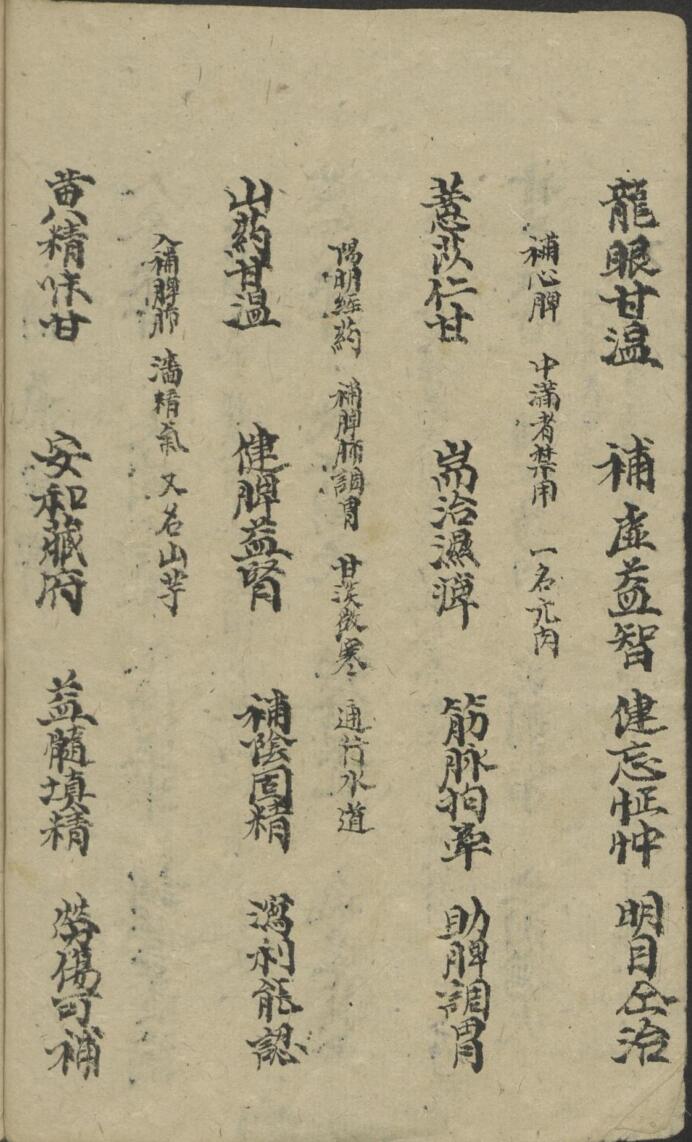 龍眼甘温 補虛益智 健忘怔忡 明目出治
補心脾 中滿者禁用 一名元肉
薏苡仁甘 耑治濕痺 筋脉拘孿 助脾調胃
陽明經葯 補脾肺調胃 甘淡微寒 通行水道
山葯甘温 健脾益腎 補陰固精 瀉利能認
入補脾肺 濇精氣 又名山芋
黄精味甘 安和藏府 益髓填精 勞傷可補